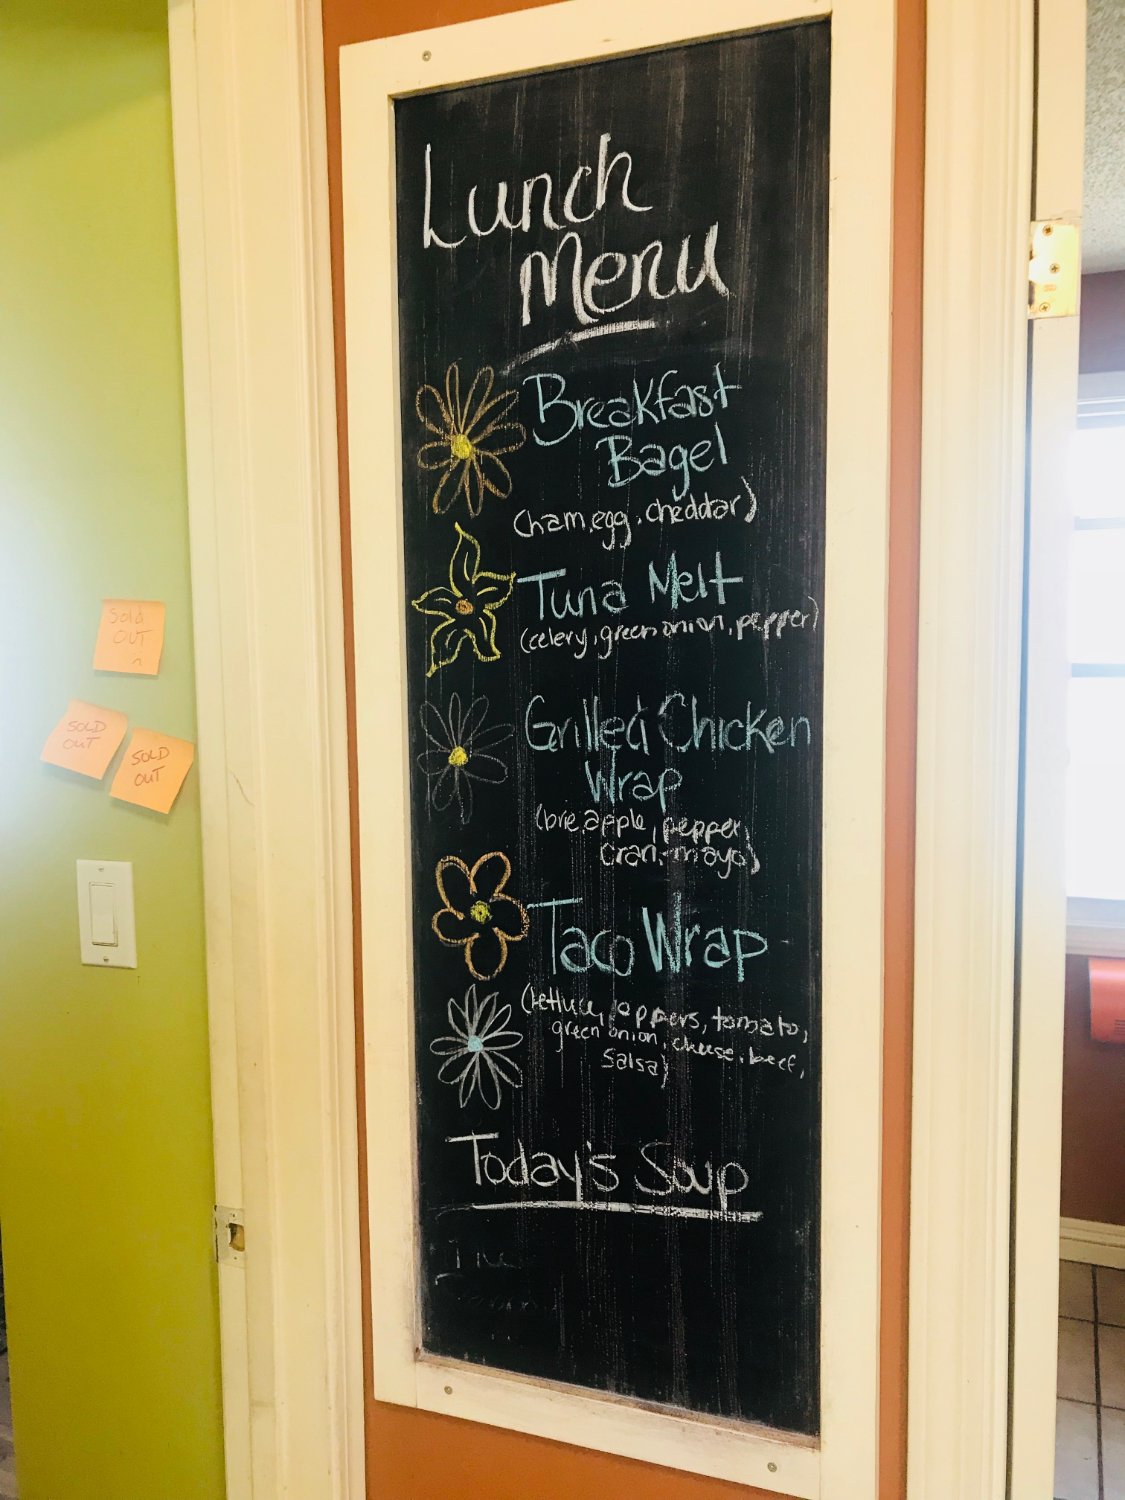 Lunch
Menu
Breakfast
Bagel
(ham, egg, cheddar)
Tuna Melt
(celery, green onion, pepper)
Grilled Chicken
Wrap
(brie, apple, pepper,
cran-mayo)
Taco Wrap
(lettuce, peppers, tomato,
green onion, cheese, beef,
salsa)
Today's Soup
Sold
OUT
SOLD
OUT
SOLD
OUT